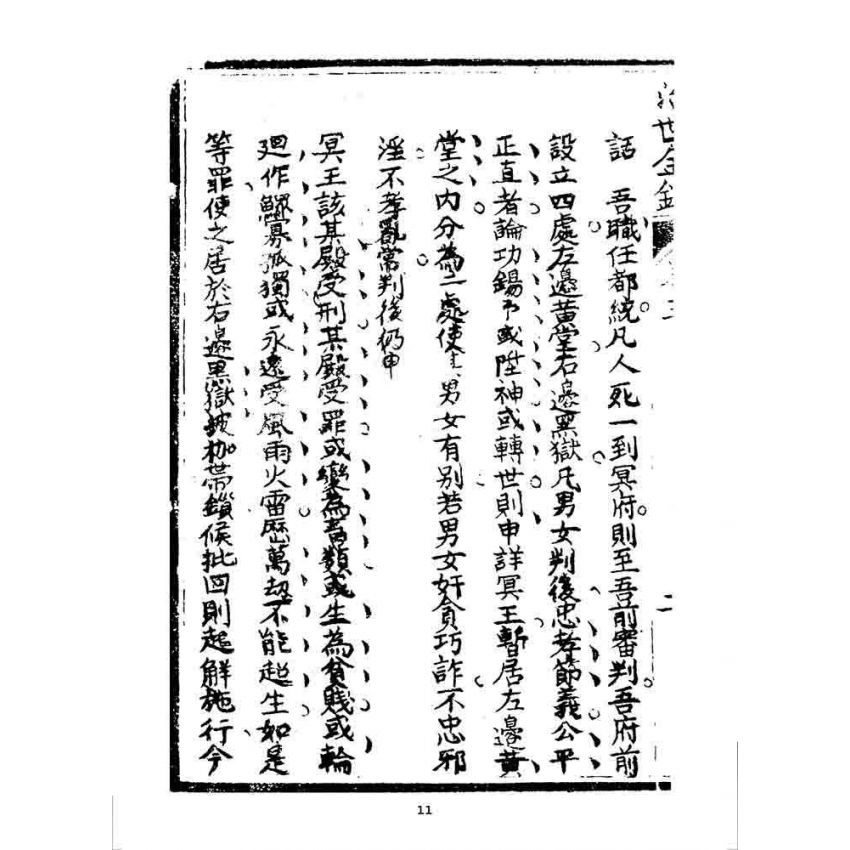 治世金針卷三 二
話 吾職任都統凡人死一到冥府則至吾前審判吾府前
設立四處左邊黃堂右邊黑獄凡男女判後忠孝節義公平
正直者論功錫予或陞神或轉世則申詳冥王暫居左邊黃
堂之內分為二處使 男女有別若男女奸貪巧詐不忠邪
淫不孝亂常判後仍申
冥王該某殿受刑某殿受罪或變為畜類或生為貧賤或輪
廻作鰥寡孤獨或永遠受風雨火雷歷萬刼不能超生如是
等罪使之居於右邊黑獄披枷帶鎖候批回則起解施行今
11